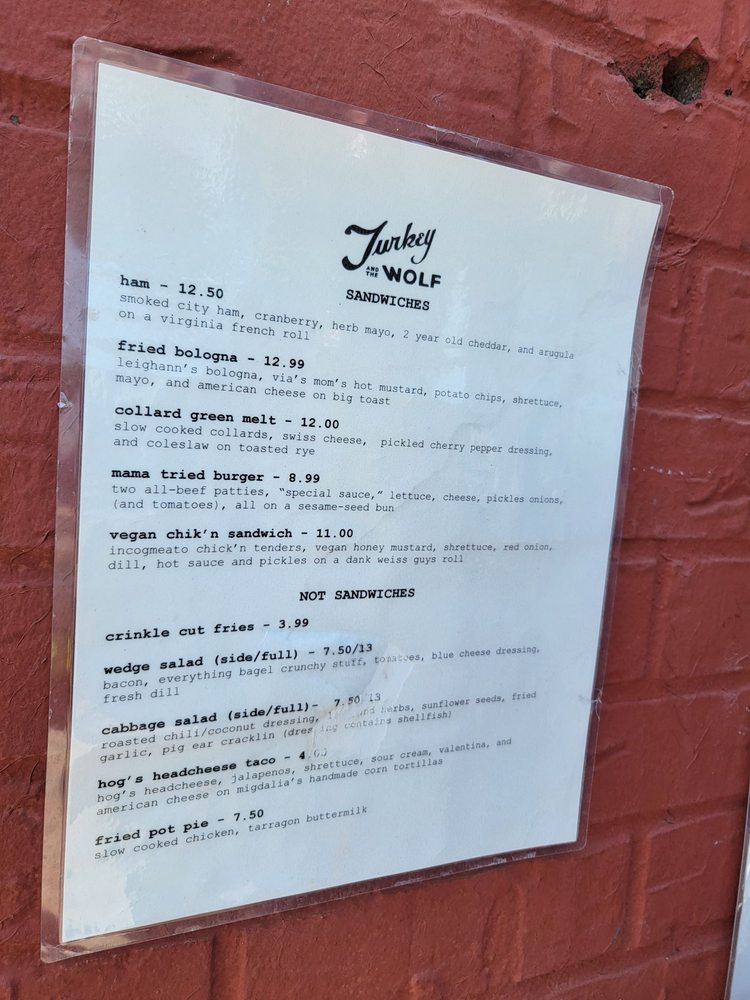 Turkey
AND THE WOLF
SANDWICHES
ham - 12.50
smoked city ham, cranberry, herb mayo, 2 year old cheddar, and arugula
on a virginia french roll
fried bologna - 12.99
leighann's bologna, via's mom's hot mustard, potato chips, shrettuce,
mayo, and american cheese on big toast
collard green melt - 12.00
slow cooked collards, swiss cheese, pickled cherry pepper dressing,
and coleslaw on toasted rye
mama tried burger - 8.99
two all-beef patties, "special sauce," lettuce, cheese, pickles onions,
(and tomatoes), all on a sesame-seed bun
vegan chik'n sandwich - 11.00
incogmeato chick'n tenders, vegan honey mustard, shrettuce, red onion,
dill, hot sauce and pickles on a dank weiss guys roll
NOT SANDWICHES
crinkle cut fries - 3.99
wedge salad (side/full) - 7.50/13
bacon, everything bagel crunchy stuff, tomatoes, blue cheese dressing,
fresh dill
cabbage salad (side/full)- 7.50/13
roasted chili/coconut dressing, and herbs, sunflower seeds, fried
garlic, pig ear cracklin (dressing contains shellfish)
hog's headcheese taco -
hog's headcheese, jalapenos, shrettuce, sour cream, valentina, and
american cheese on migdalia's handmade corn tortillas
fried pot pie - 7.50
slow cooked chicken, tarragon buttermilk